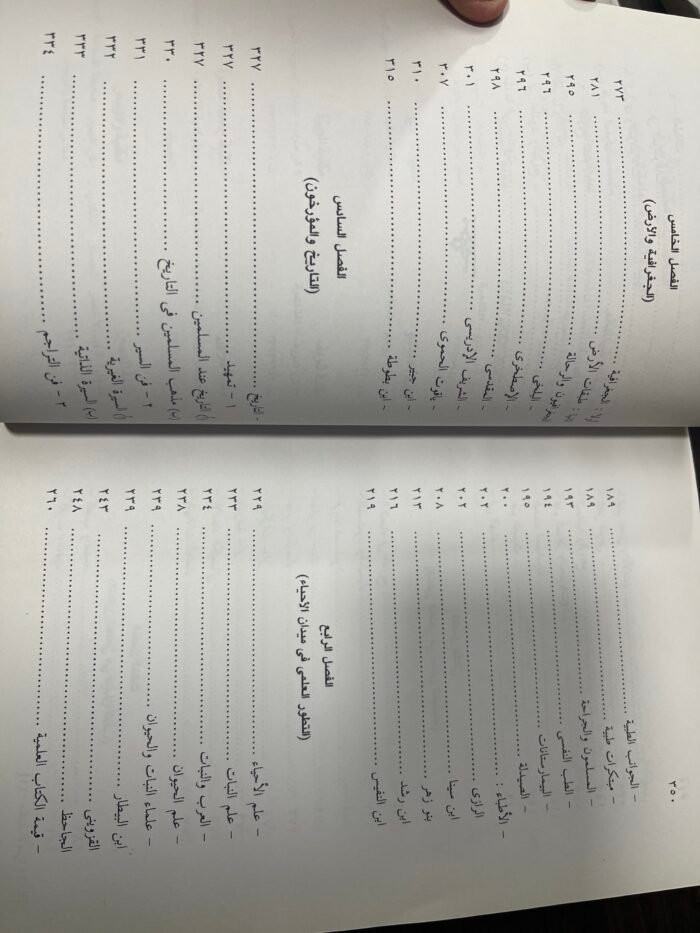 ٣٥٠
- الجوانب الطبية ........ ١٨٩
- مبتكرات طبية ........ ١٨٩
- المسلمون والجراحة ........ ١٩٣
- الطب النفسى ........ ١٩٤
- البيمارستانات ........ ١٩٥
- الصيدلة ........ ٢٠٠
- الأطباء : ........ ٢٠٢
الرازى ........ ٢٠٢
ابن سينا ........ ٢٠٨
بنو زهر ........ ٢١٣
ابن رشد ........ ٢١٦
ابن النفيس ........ ٢١٩
الفصل الرابع
(التطور العلمى فى ميدان الأحياء)
- علم الأحياء ........ ٢٢٩
- علم النبات ........ ٢٣٣
- العرب والنبات ........ ٢٣٤
- علم الحيوان ........ ٢٣٨
- علماء النبات والحيوان ........ ٢٣٩
ابن البيطار ........ ٢٣٩
القزوينى ........ ٢٤٣
الجاحظ ........ ٢٤٨
- قيمة الكتاب العلمية ........ ٢٦٠
الفصل الخامس
(الجغرافية والأرض)
الجغرافية ........ ٢٧٣
طبقات الأرض ........ ٢٨١
والرحالة ........ ٢٩٥
- البلخى ........ ٢٩٦
- الإصطخرى ........ ٢٩٦
- المقدسى ........ ٢٩٨
- الشريف الإدريسى ........ ٣٠١
- ياقوت الحموى ........ ٣٠٧
- ابن جبير ........ ٣١٠
- ابن بطوطة ........ ٣١٥
الفصل السادس
(التاريخ والمؤرخون)
- التاريخ ........ ٣٢٧
١ - تمهيد ........ ٣٢٧
(أ) التاريخ عند المسلمين ........ ٣٢٧
(ب) مذهب المسلمين فى التاريخ ........ ٣٣٠
٢ - فن السير ........ ٣٣١
(أ) السيرة الغيرية ........ ٣٣٢
(ب) السيرة الذاتية ........ ٣٣٣
٣ - فن التراجم ........ ٣٣٤